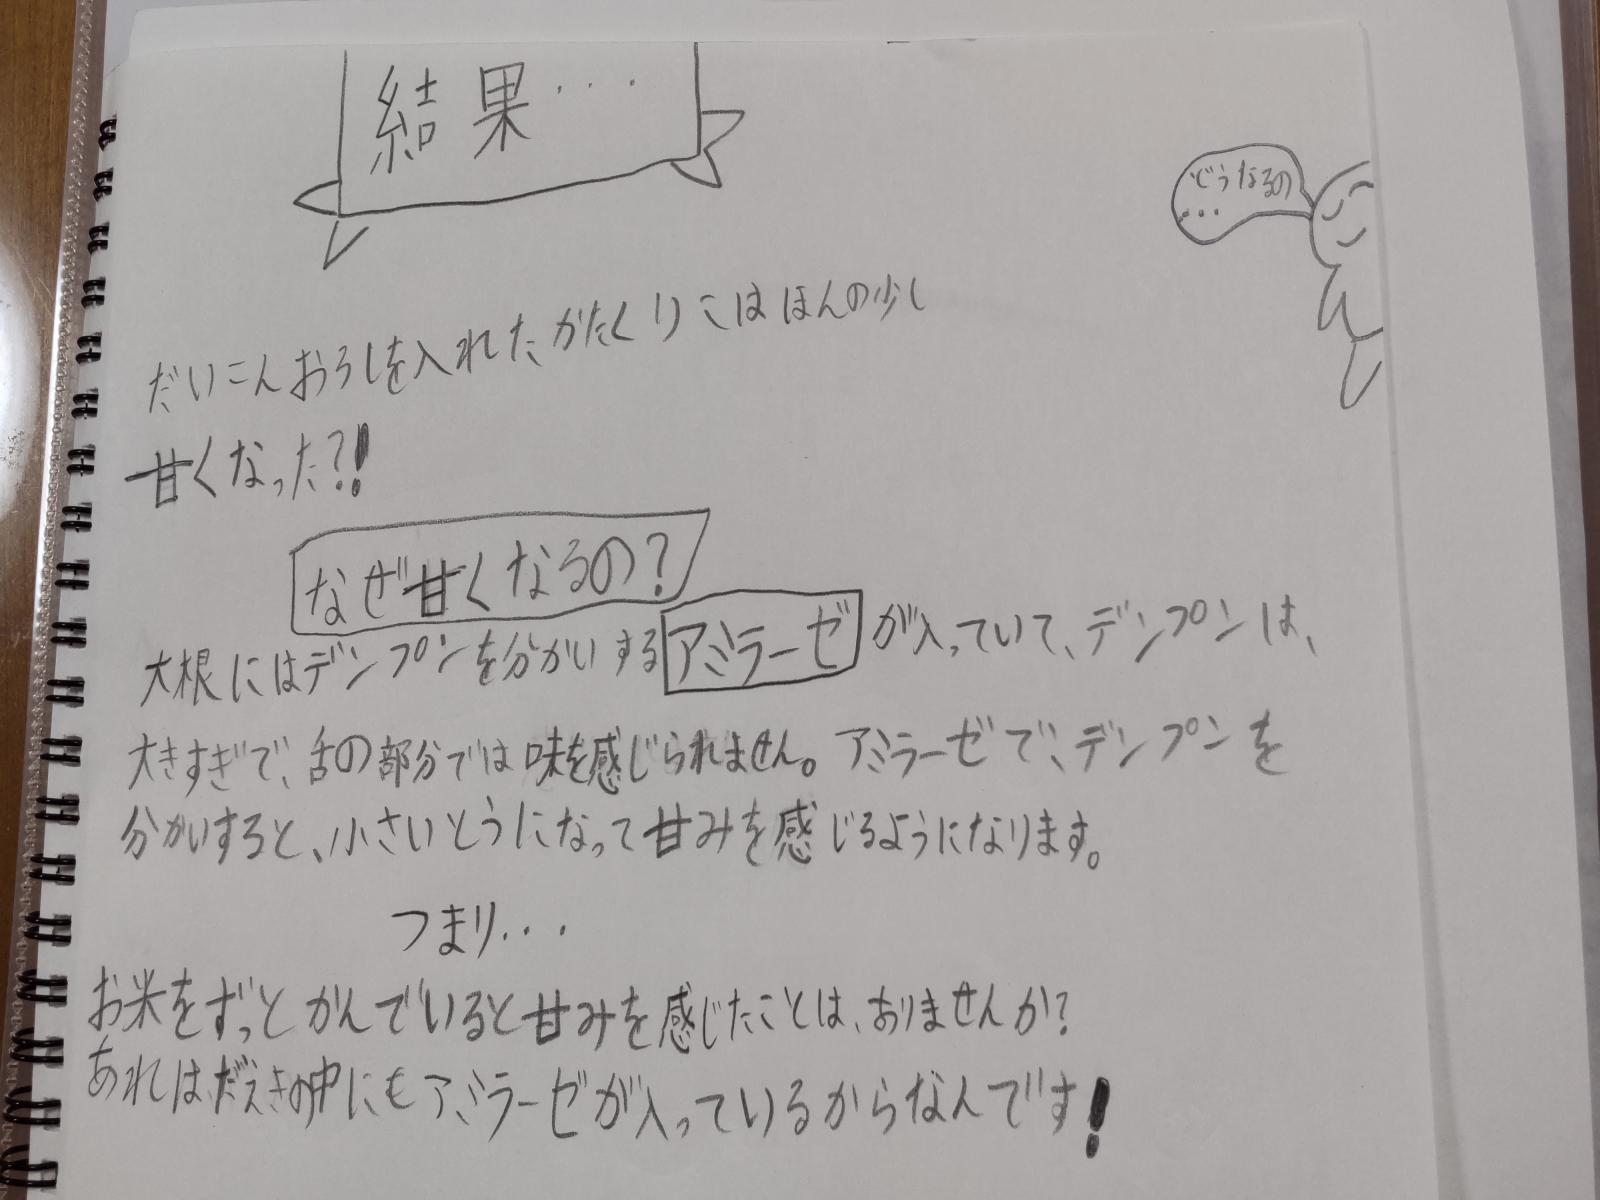 結果・・・
どうなるの
・・・
だいこんおろしを入れたかたくりこはほんの少し
甘くなった?!
なぜ甘くなるの?
大根にはデンプンを分かいするアミラーゼが入っていて、デンプンは、
大きすぎで、舌の部分では味を感じられません。アミラーゼで、デンプンを
分かいすると、小さいとうになって甘みを感じるようになります。
つまり・・・
お米をずっとかんでいると甘みを感じたことは、ありませんか?
あれは、だえきの中にもアミラーゼが入っているからなんです!